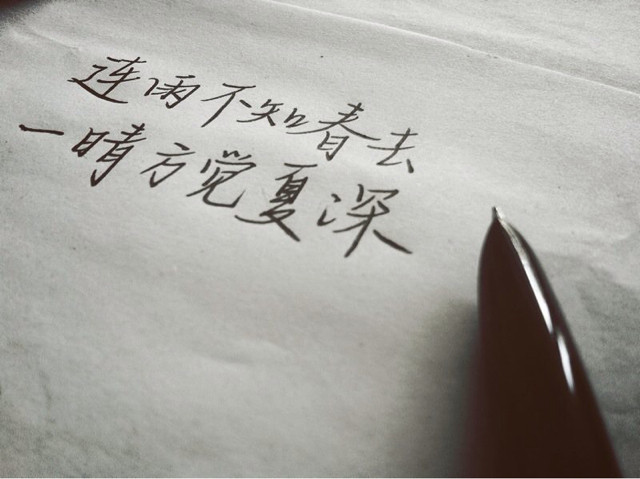 连雨不知春去
一晴方觉夏深